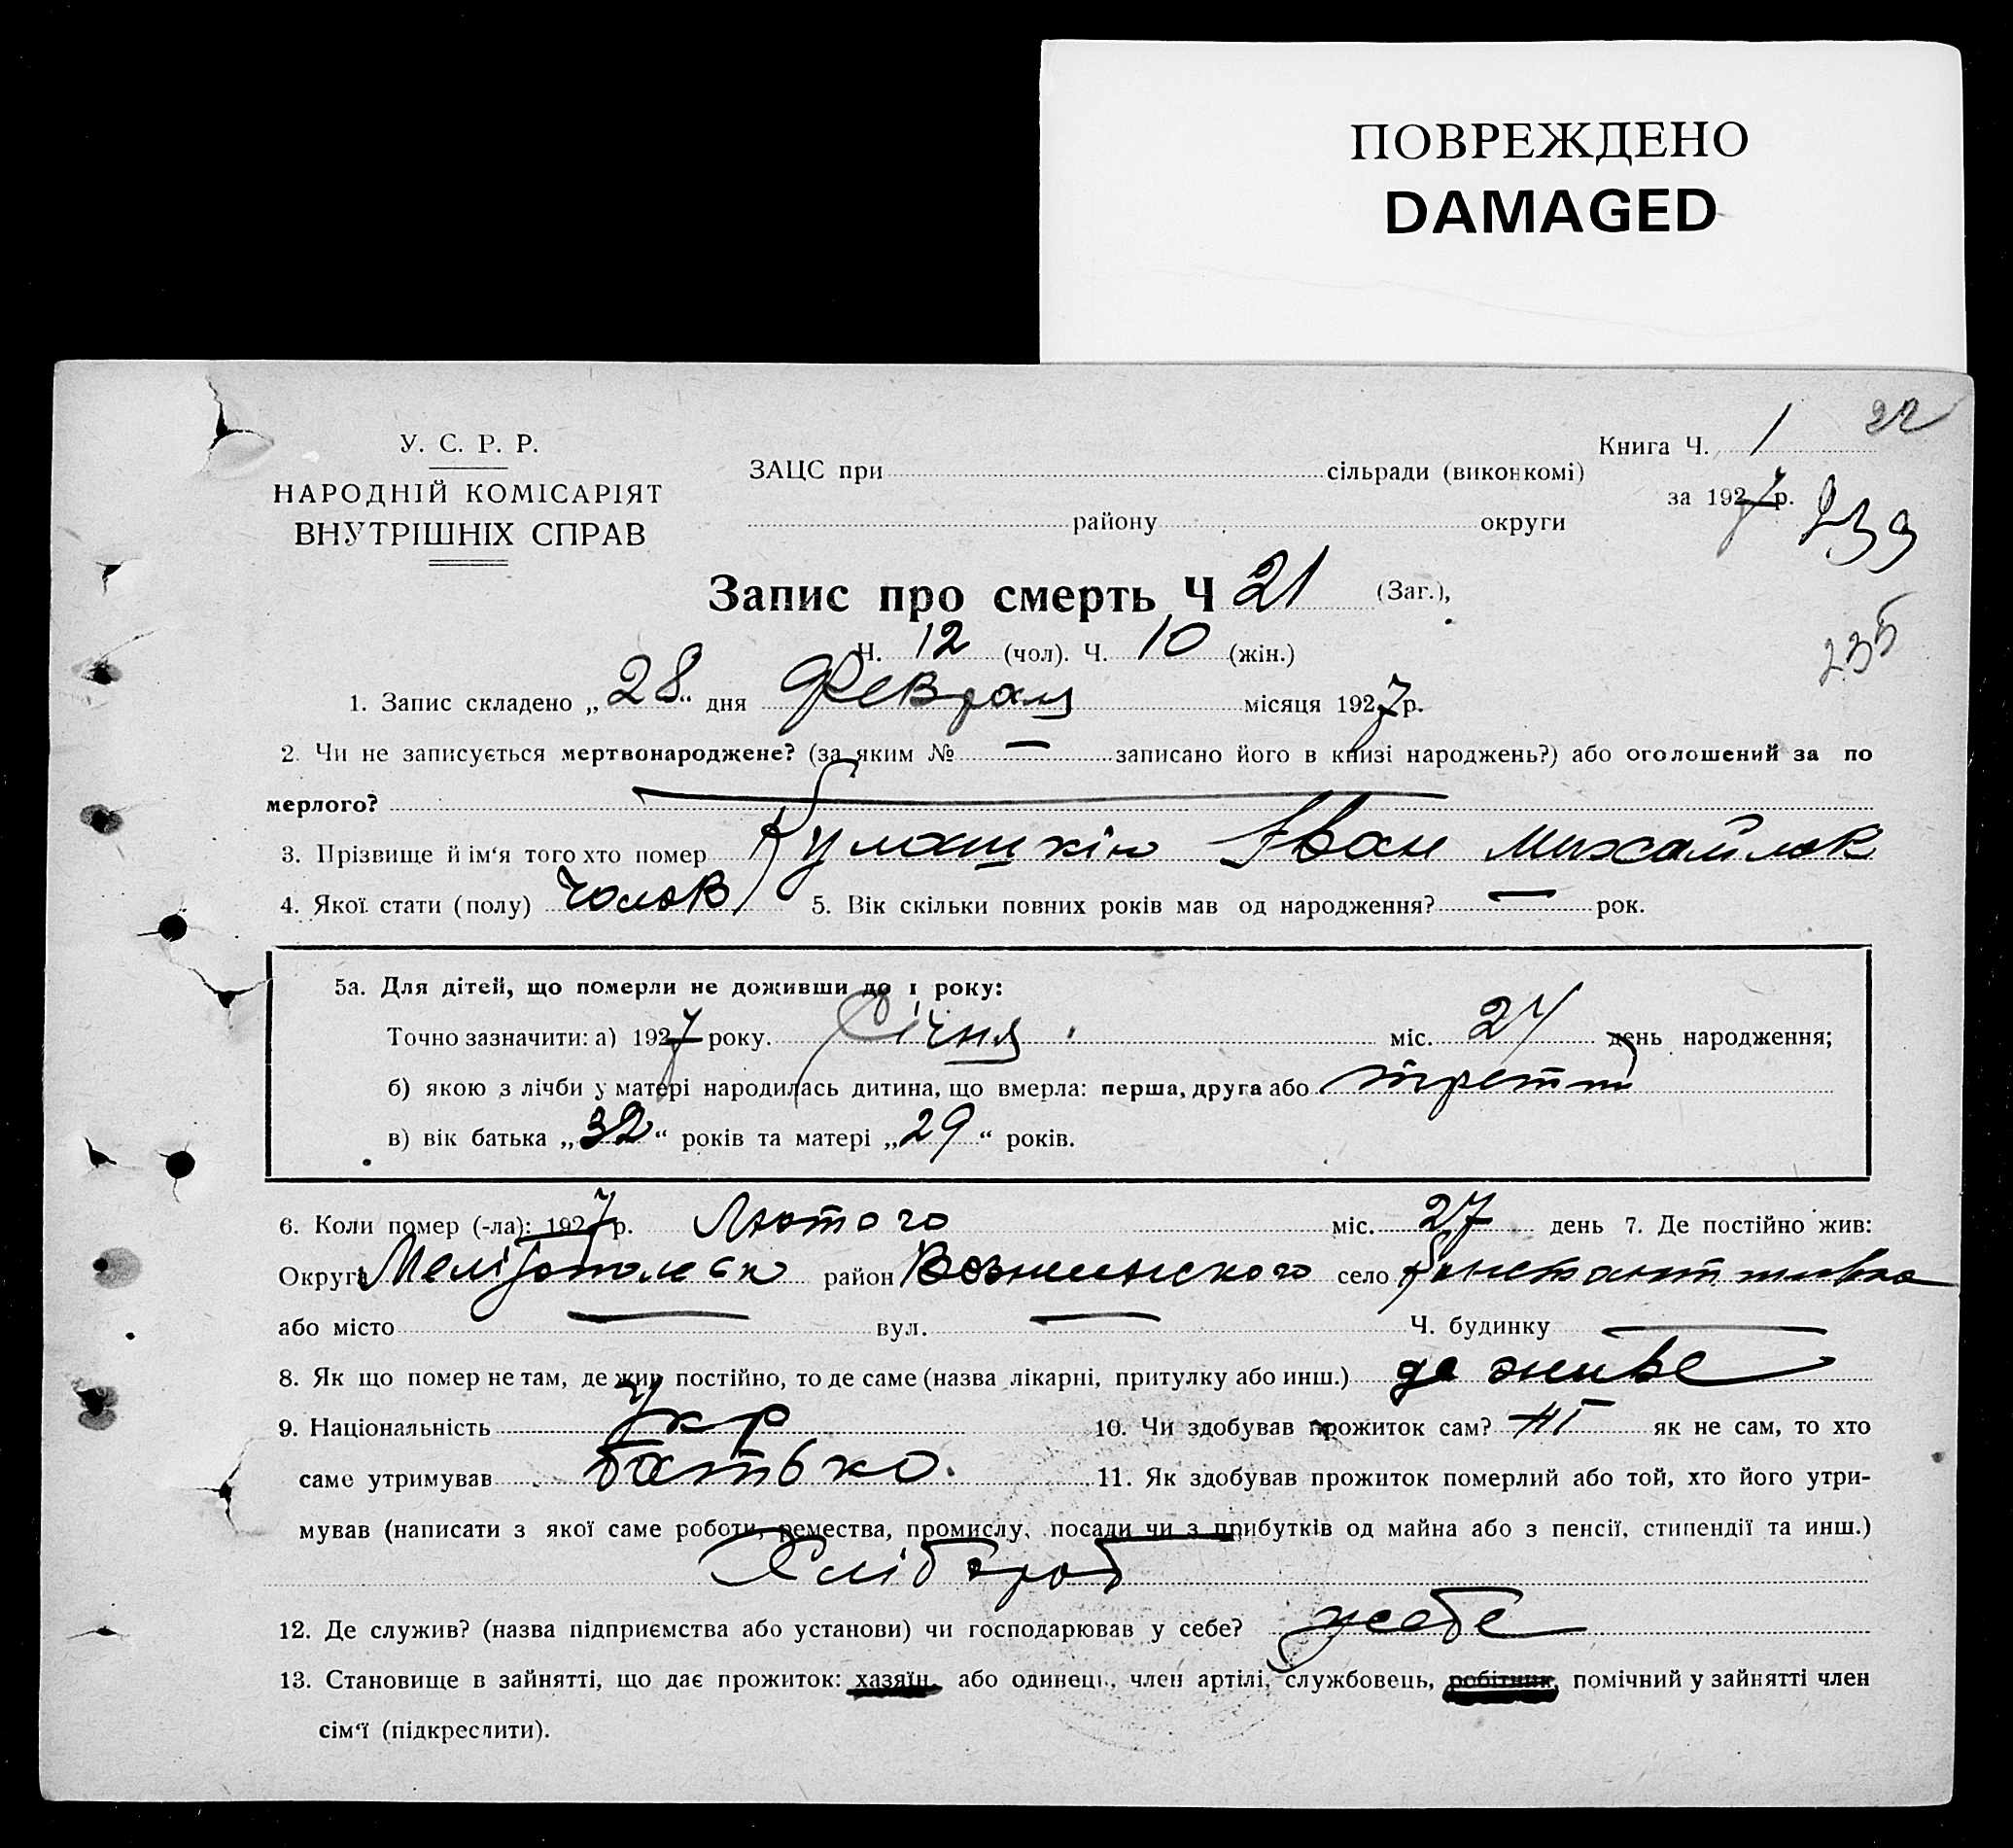 ПОВРЕЖДЕНО
DAMAGED
22
У. С. Р. Р.
НАРОДНІЙ КОМІСАРІЯТ
ВНУТРІШНІХ СПРАВ
Книга Ч. 1
ЗАЦС при сільради (виконкомі)
за 1927 р. 239
району округи
Запис про смерть Ч 21 (Заг.),
235
Ч. 12 (чол). Ч. 10 (жін.)
1. Запис складено „28“ дня Февраля місяця 1927 р.
2. Чи не записується мертвонароджене? (за яким № — записано його в книзі народжень?) або оголошений за по
мерлого?
3. Прізвище й ім‘я того хто помер Кулашкін Іван Михайлов
4. Якої стати (полу) Чолов 5. Вік скільки повних років мав од народження? — рок.
5а. Для дітей, що померли не доживши до 1 року:
Точно зазначити: а) 1927 року. Січня міс. 27 день народження;
б) якою з лічби у матері народилась дитина, що вмерла: перша, друга або
в) вік батька „32“ років та матері „29“ років.
6. Коли помер (-ла): 1927 р. Лютого міс. 27 день 7. Де постійно жив:
Округа район село
або місто — вул. — Ч. будинку —
8. Як що помер не там, де жив постійно, то де саме (назва лікарні, притулку або инш.) де живе
9. Національність Укр 10. Чи здобував прожиток сам? Ні як не сам, то хто
саме утримував батько. 11. Як здобував прожиток померлий або той, хто його утри-
мував (написати з якої саме роботи, ремества, промислу, посади чи з прибутків од майна або з пенсії, стипендії та инш.)
Хлібороб
12. Де служив? (назва підприємства або установи) чи господарював у себе? у себе
13. Становище в зайнятті, що дає прожиток: хазяїн, або одинець, член артілі, службовець, робітник, помічний у зайнятті член
сім‘ї (підкреслити).